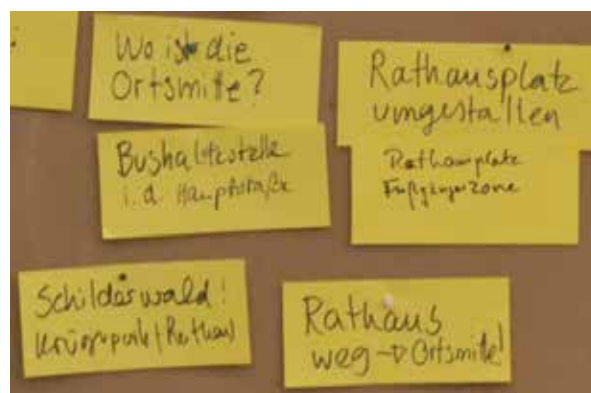 Wo ist die
Ortsmitte?
Rathausplatz
umgestalten
Bushaltestelle
i.d. Hauptstraße
Rathausplatz
Fußgängerzone
Schilderwald!
(Rathaus)
Rathaus
weg → Ortsmitte!